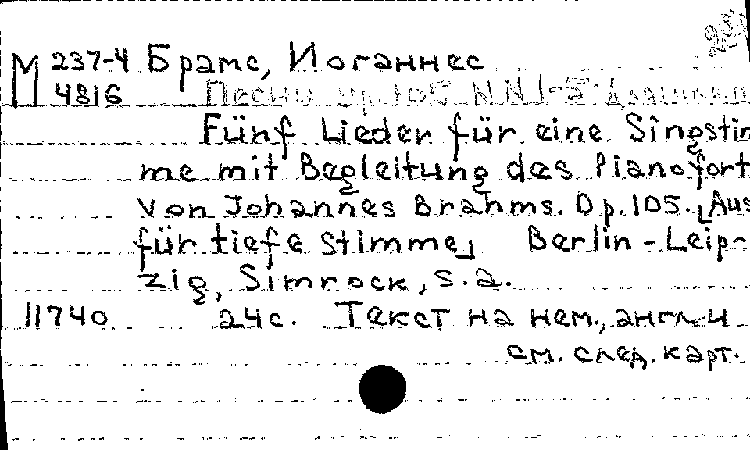 М 237-4 Брамс, Иоганнес
4816 Песни ор. 105 N N 1-5
Fünf Lieder für eine Singstim
me mit Begleitung des Pianofort
von Johannes Brahms. Op. 105. [Aus
für tiefe Stimme] Berlin-Leip-
zig, Simrock, s.a.
11740 24с. Текст на нем., англ. и
см. след. карт.